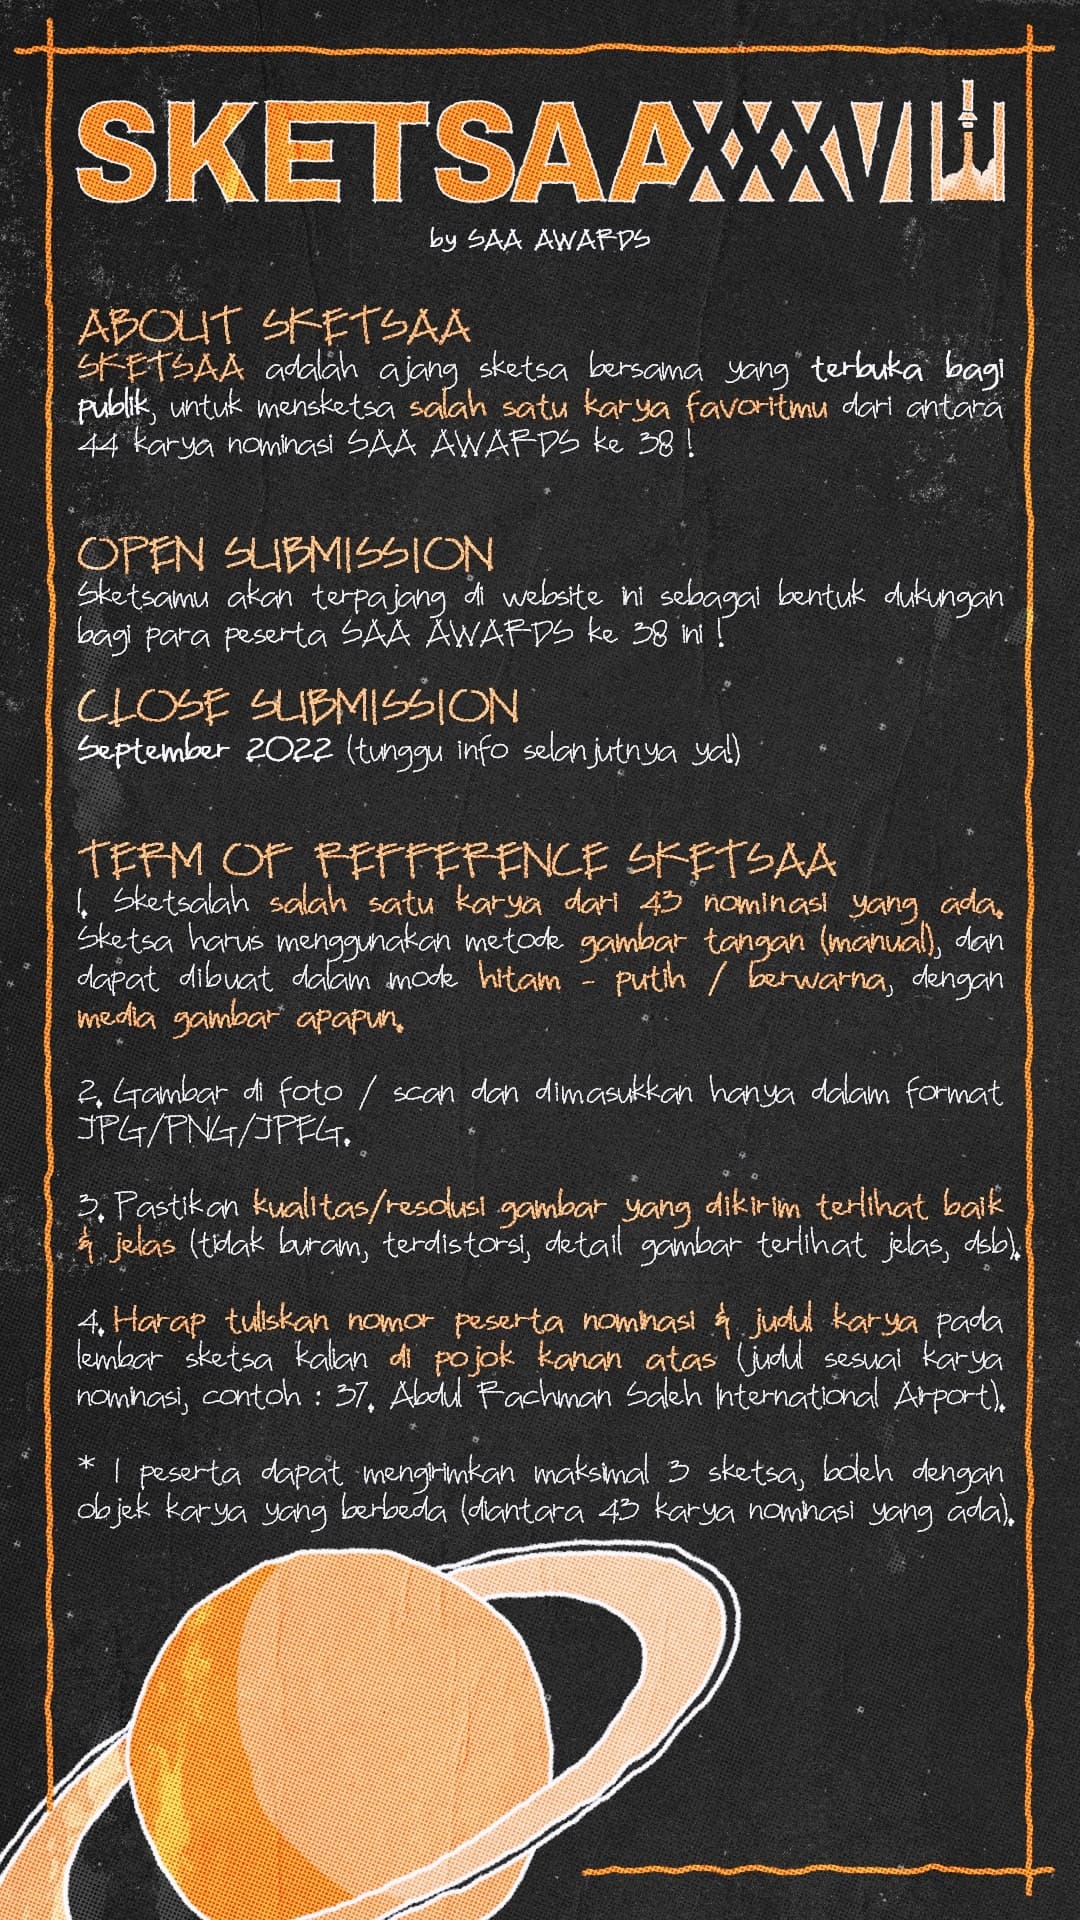 SKETSAAXXXVIII
by SAA AWARDS
ABOUT SKETSAA
SKETSAA adalah ajang sketsa bersama yang terbuka bagi
publik, untuk mensketsa salah satu karya favoritmu dari antara
44 karya nominasi SAA AWARDS ke 38 !
OPEN SUBMISSION
Sketsamu akan terpajang di website ini sebagai bentuk dukungan
bagi para peserta SAA AWARDS ke 38 ini !
CLOSE SUBMISSION
September 2022 (tunggu info selanjutnya ya!)
TERM OF REFFERENCE SKETSAA
1. Sketsalah salah satu karya dari 43 nominasi yang ada.
Sketsa harus menggunakan metode gambar tangan (manual), dan
dapat dibuat dalam mode hitam - putih / berwarna, dengan
media gambar apapun.
2. Gambar di foto / scan dan dimasukkan hanya dalam format
JPG/PNG/JPEG.
3. Pastikan kualitas/resolusi gambar yang dikirim terlihat baik
& jelas (tidak buram, terdistorsi, detail gambar terlihat jelas, dsb).
4. Harap tuliskan nomor peserta nominasi & judul karya pada
lembar sketsa kalian di pojok kanan atas (judul sesuai karya
nominasi, contoh : 37. Abdul Rachman Saleh International Airport).
* 1 peserta dapat mengirimkan maksimal 3 sketsa, boleh dengan
objek karya yang berbeda (diantara 43 karya nominasi yang ada).